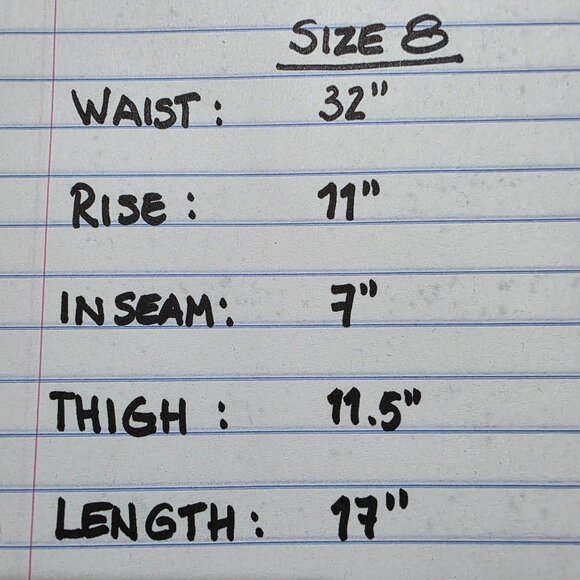 SIZE 8
WAIST: 32"
RISE: 11"
INSEAM: 7"
THIGH: 11.5"
LENGTH: 17"